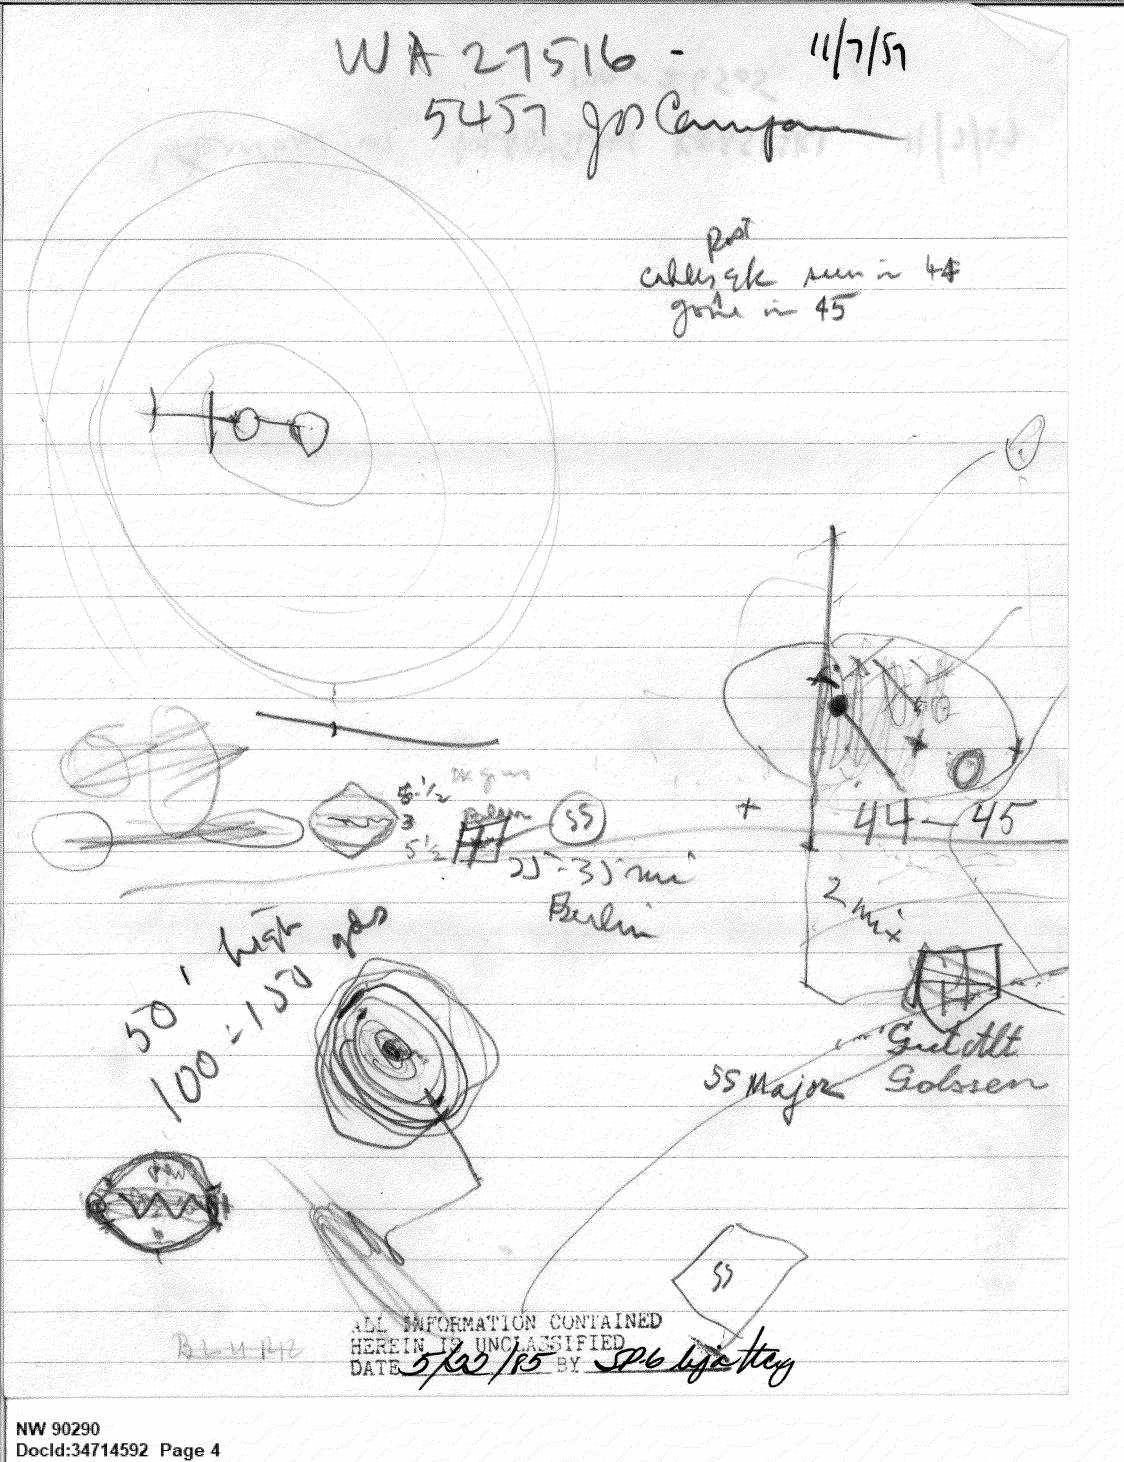 WA 27516 - 11/7/57
5457 Jos Campau
Post
seen in 44
gone in 45
5 1/2
3
5 1/2
SS
25-35 mi
Berlin
44-45
2 mi
50' high
100-150 yds
Gut Alt
Golssen
SS Major
SS
ALL INFORMATION CONTAINED
HEREIN IS UNCLASSIFIED
DATE 5/22/85 BY SP6
NW 90290
DocId:34714592 Page 4